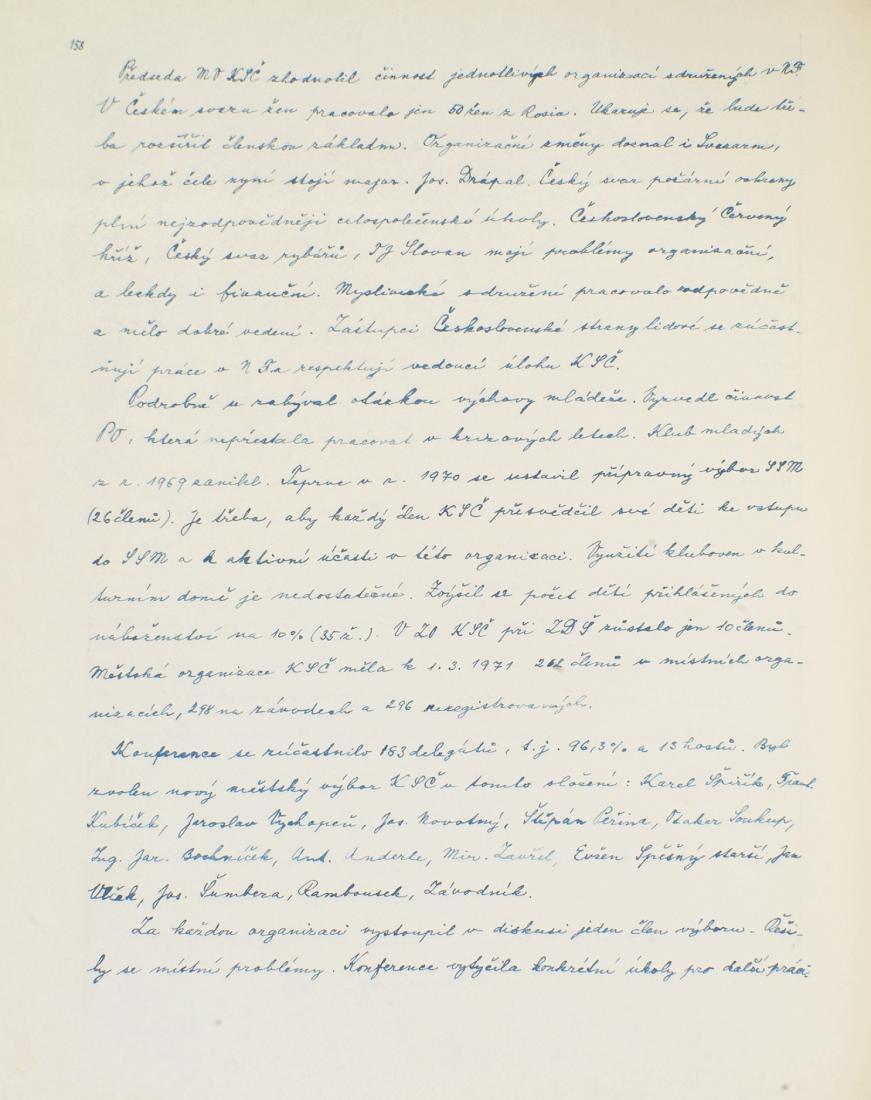 158
Předseda MV KSČ zhodnotil činnost jednotlivých organizací sdružených v NF
V Českém svazu žen pracovalo jen 50 žen z Rosia. Ukazuje se, že bude tře-
ba rozšířit členskou základnu. Organizační změny doznal i Svazarm,
v jehož čele nyní stojí major. Jos. Drápal. Český svaz požární ochrany
plní nejzodpovědněji celospolečenské úkoly. Československý Červený
kříž, Český svaz rybářů, TJ Slovan mají problémy organizační,
a leckdy i finanční. Myslivecké sdružení pracovalo zodpovědně
a mělo dobré vedení. Zástupci Československé strany lidové se zúčast-
ňují práce v NF a respektují vedoucí úlohu KSČ.
Podrobně se zabýval otázkou výchovy mládeže. Vyzvedl činnost
PO, která nepřestala pracovat v krizových letech. Klub mladých
z r. 1969 zanikl. Teprve v r. 1970 se ustavil přípravný výbor SSM
(26 členů). Je třeba, aby každý člen KSČ přesvědčil své děti ke vstupu
do SSM a k aktivní účasti v této organizaci. Využití kluboven v kul-
turním domě je nedostatečné. Zvýšil se počet dětí přihlášených do
náboženství na 10% (35 ž.). V ZO KSČ při ZDŠ zůstalo jen 10 členů.
Městská organizace KSČ měla k 1. 3. 1971 členů v místních orga-
nizacích, 298 na závodech a 296
Konference se zúčastnilo 183 delegátů, t.j. 96,3% a 13 hostů. Byl
zvolen nový městský výbor KSČ v tomto složení: Karel Špiřík, Frant.
Kubíček, Jaroslav Vychopeň, Jos. Novotný, Štěpán Peřina, Otakar Soukup,
Ing. Jar. Bochníček, Ant. Anderle, Mir. Zavřel, Evžen Spěšný starší, Jan
Vlček, Jos. Šumbera, Rambousek, Závodník.
Za každou organizaci vystoupil v diskusi jeden člen výboru. Řeši-
ly se místní problémy. Konference vytyčila konkrétní úkoly pro další práci